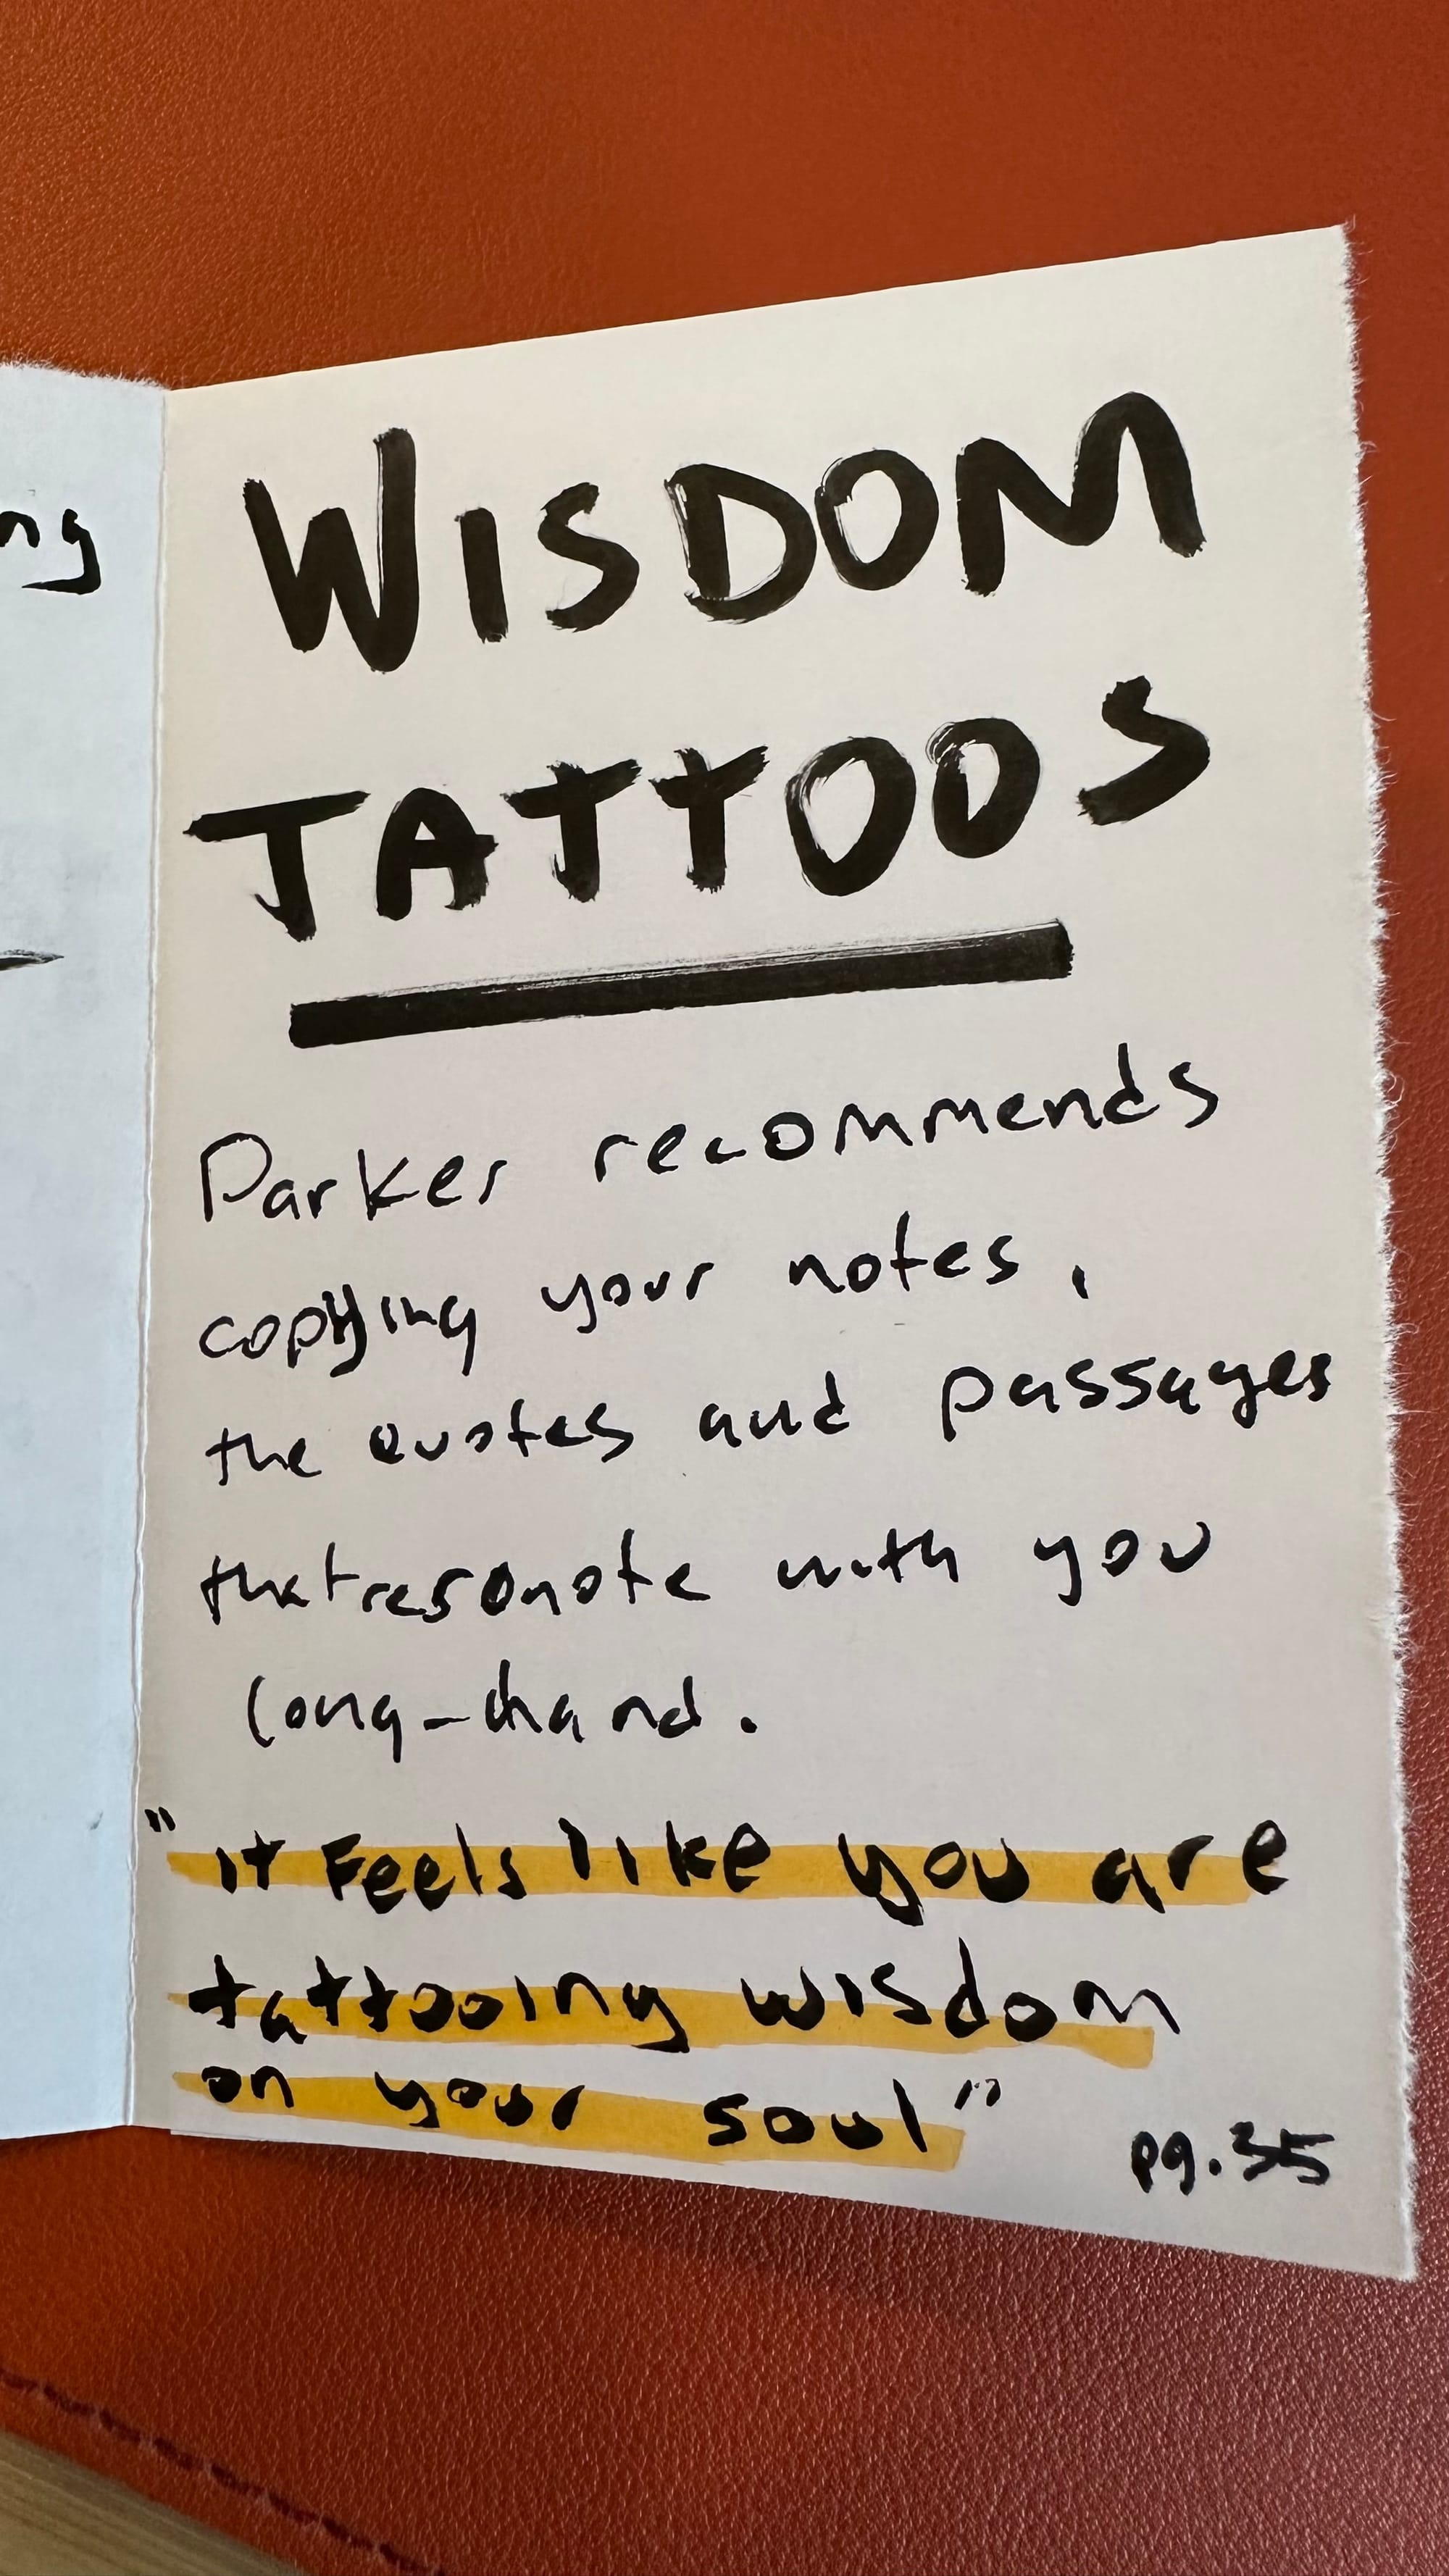 ng
WISDOM
TATTOOS
Parker recommends
copying your notes,
the quotes and passages
that resonate with you
long-hand.
"it feels like you are
tattooing wisdom
on your soul"
pg. 35